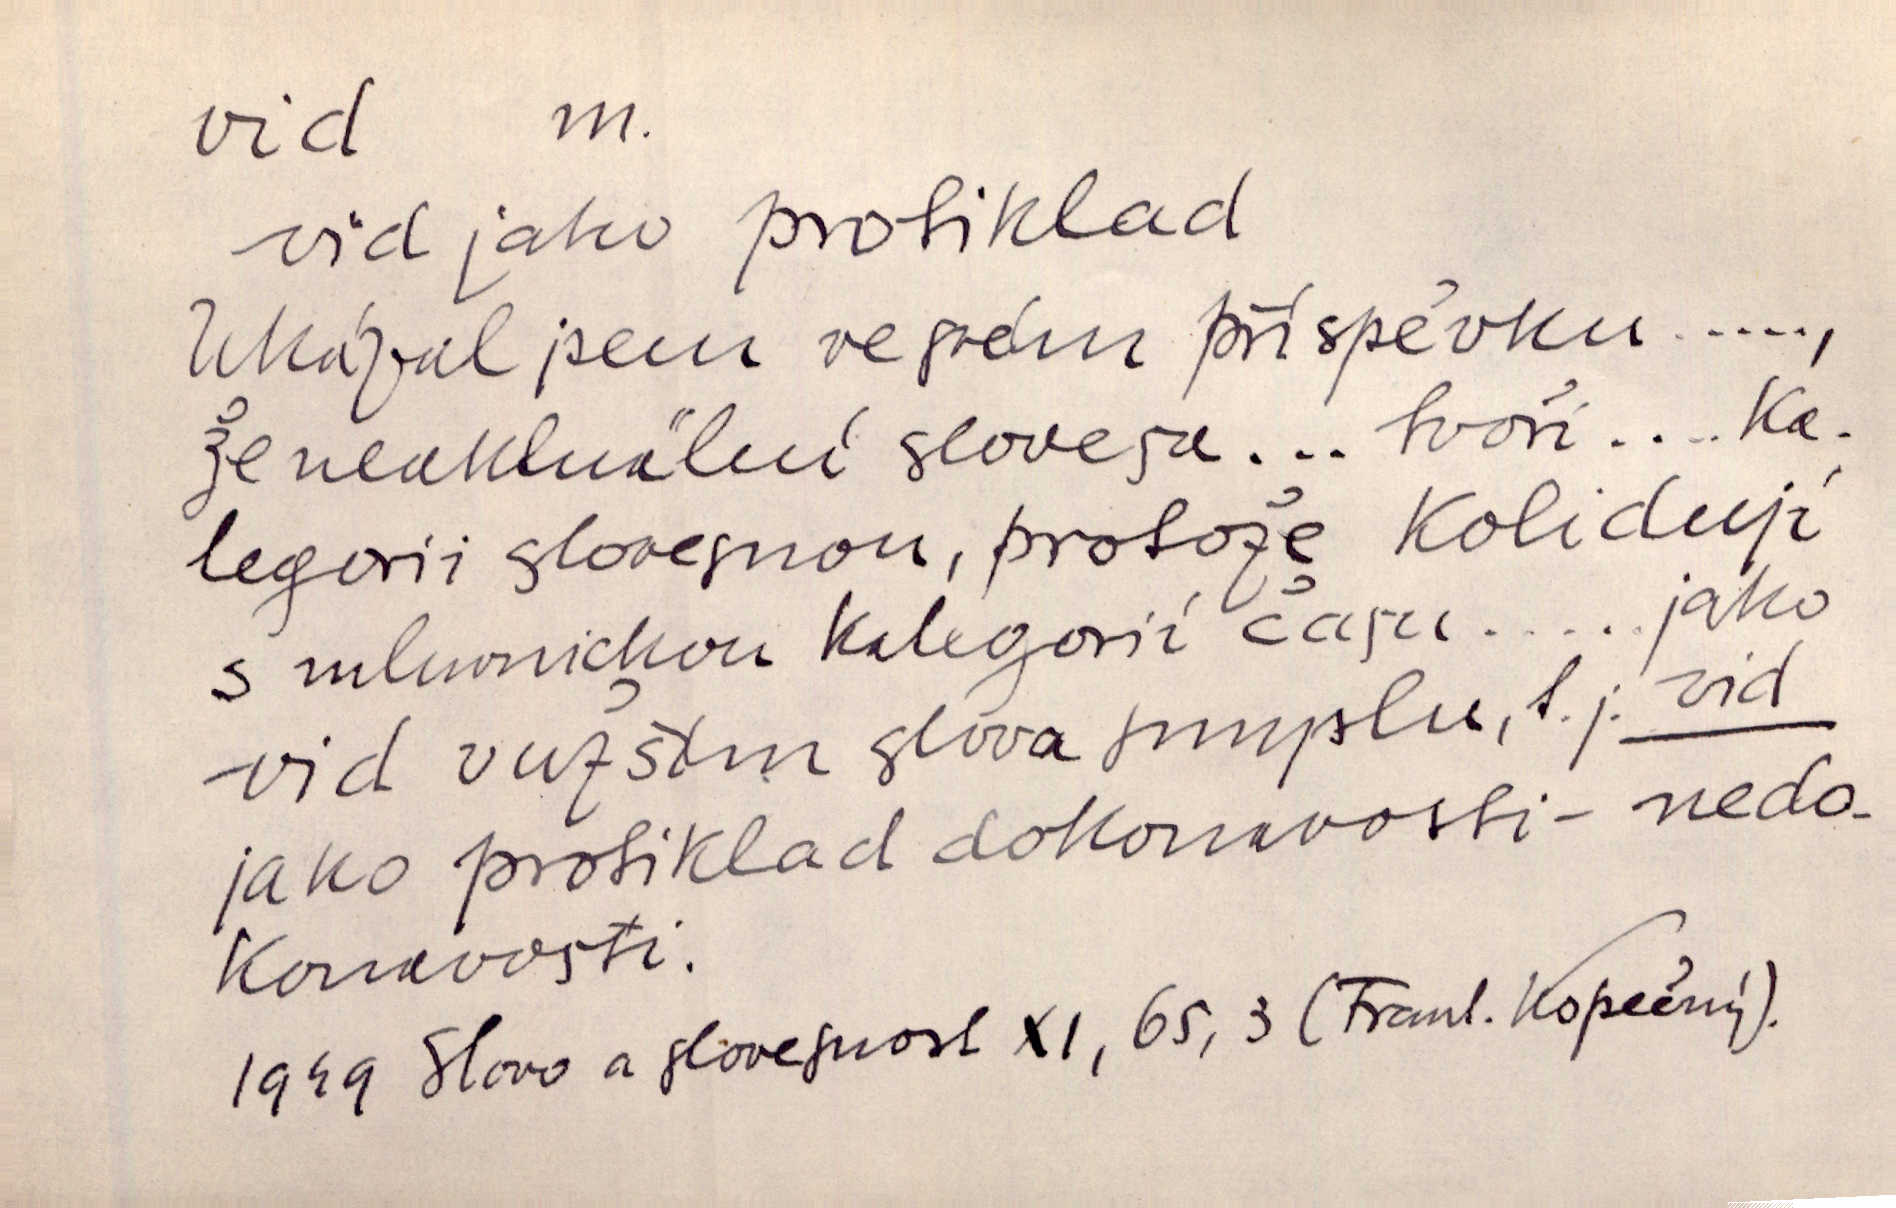 vid m.
vid jako protiklad
Ukázal jsem ve svém příspěvku .....,
že neaktuální slovesa ... tvoří .... ka-
tegorii slovesnou, protože kolidují
s mluvnickou kategorií času ..... jako
vid v užším slova smyslu, t. j. vid
jako protiklad dokonavosti - nedo-
konavosti.
1949 Slovo a slovesnost XI, 65, 3 (Frant. Kopečný).